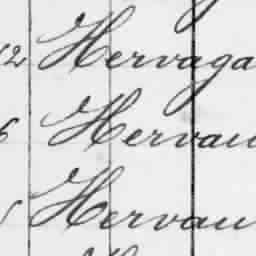 12 Hervaga
6 Hervau
Hervau